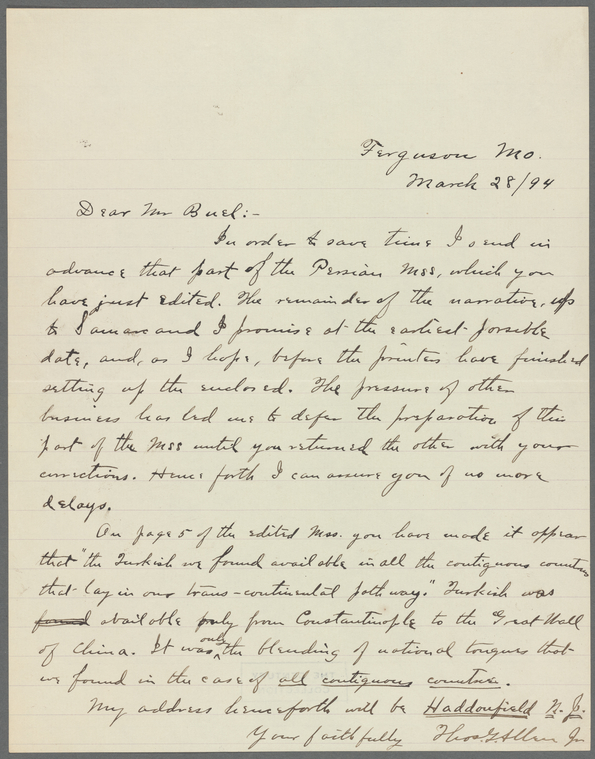 Ferguson Mo.
March 28/94
Dear Mr Buel:-
In order to save time I send in
advance that part of the Persian Mss, which you
have just edited. The remainder of the narrative, up
to Samarcand I promise at the earliest possible
date, and, as I hope, before the printers have finished
setting up the enclosed. The pressure of other
business has led me to defer the preparation of this
part of the Mss until you returned the other with your
corrections. Hence forth I can assure you of no more
delays.
On page 5 of the edited Mss. you have made it appear
that "the Turkish we found available in all the contiguous countries
that lay in our trans-continental pathway." Turkish was
found available only from Constantinople to the Great Wall
of China. It was only the blending of national tongues that
we found in the case of all contiguous countries.
My address henceforth will be Haddonfield N. J.
Your faithfully Thos G Allen Jr